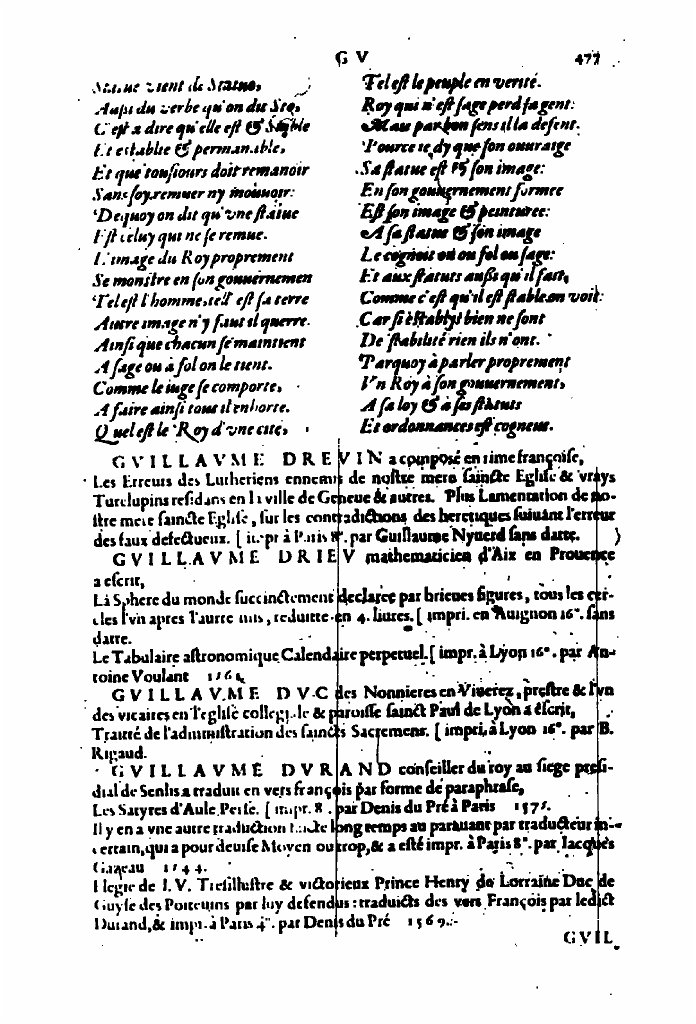 G V 477
Statue vient de Statuo,
Aussi du verbe qu'on dit Sto,
C'est a dire qu'elle est & Stable
Et establie & permanable,
Et que tousiours doit remanoir
Sans soy remuer ny mouuoir:
Dequoy on dit qu'vne statue
Est celuy qui ne se remue.
L'image du Roy proprement
Se monstre en son gouuernemen
Tel est l'homme, telle est sa terre
Autre image n'y faut il querre.
Ainsi que chacun se maintient
A sage ou à fol on le tient.
Comme le iuge se comporte,
A faire ainsi tous il enhorte.
Quel est le Roy d'vne cité,
Tel est le peuple en verité.
Roy qui n'est sage perd sa gent:
Mais par bon sens il la defent.
Pource te dy que son ouurage
Sa statue est & son image:
En son gouuernement formee
Est son image & peinturee:
A sa statue & son image
Le cognoit on ou fol ou sage:
Et aux statuts aussi qu'il fait,
Comme c'est qu'il est stable on voit:
Car si establys bien ne sont
De stabilité rien ils n'ont.
Parquoy à parler proprement
Vn Roy à son gouuernement,
A sa loy & à ses statuts
Et ordonnances est cogneuz.
GVILLAVME DREVIN a composé en rime françoise,
Les Erreurs des Lutheriens ennemis de nostre mere saincte Eglise & vrays
Turelupins residans en la ville de Geneue & autres. Plus Lamentation de no-
stre mere saincte Eglise, sur les contradictions des heretiques suiuant l'erreur
des faux defectueux. [ impr à Paris 8°. par Guillaume Nyuerd sans datte. )
GVILLAVME DRIEV mathematicien d'Aix en Prouence
a escrit,
La Sphere du monde succinctement declaree par brieues figures, tous les cer-
cles l'vn apres l'autre mis, reduitte en 4. liures. [ impri. en Auignon 16°. sans
datte.
Le Tabulaire astronomique, Calendaire perpetuel. [ impr. à Lyon 16°. par An-
toine Voulant
GVILLAVME DVC des Nonnieres en Viuerez, prestre & l'vn
des vicaires en l'eglise collegiale & paroisse sainct Paul de Lyon a escrit,
Traitté de l'administration des saincts Sacremens. [ impri. à Lyon 16°. par B.
Rigaud.
GVILLAVME DVRAND conseiller du roy au siege presi-
dial de Senlis a traduit en vers françois par forme de paraphrase,
Les Satyres d'Aule Perse. [ impr. 8°. par Denis du Pré à Paris 1575.
Il y en a vne autre traduction faicte long temps au parauant par traducteur in-
certain, qui a pour deuise Moyen ou trop, & a esté impr. à Paris 8°. par Iacques
Gazeau 1544.
Elegie de I. V. Tresillustre & victorieux Prince Henry de Lorraine Duc de
Guyse des Poiteuins par luy defendus: traduicts des vers François par ledict
Durand, & impr. à Paris 4°. par Denis du Pré 1569.
GVIL